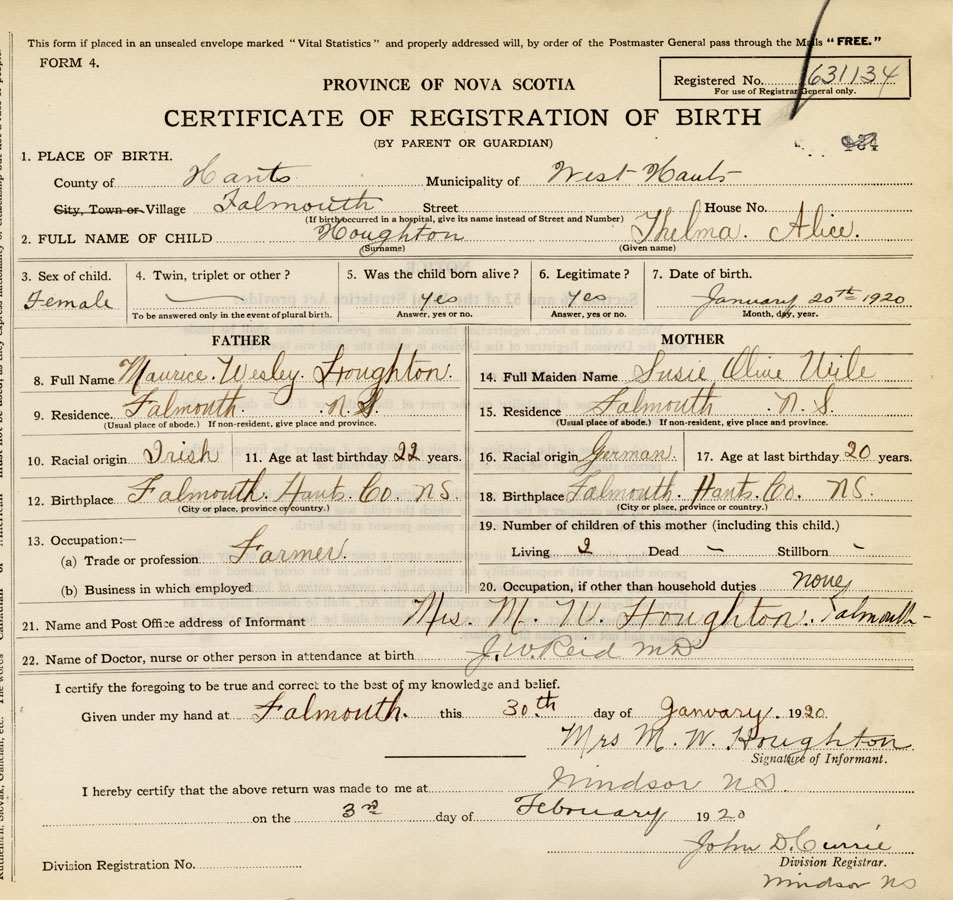 This form if placed in an unsealed envelope marked "Vital Statistics" and properly addressed will, by order of the Postmaster General pass through the Mails "FREE."
FORM 4.
Registered No. 631134
For use of Registrar General only.
PROVINCE OF NOVA SCOTIA
CERTIFICATE OF REGISTRATION OF BIRTH
(BY PARENT OR GUARDIAN)
1. PLACE OF BIRTH.
County of Hants Municipality of West Hants
City, Town or Village Falmouth Street House No.
(If birth occurred in a hospital, give its name instead of Street and Number)
2. FULL NAME OF CHILD Houghton Thelma. Alice.
(Surname) (Given name)
3. Sex of child. 4. Twin, triplet or other? 5. Was the child born alive? 6. Legitimate? 7. Date of birth.
Female yes yes January 20th 1920
To be answered only in the event of plural birth. Answer, yes or no. Answer, yes or no. Month, day, year.
FATHER
8. Full Name Maurice. Wesley. Houghton.
9. Residence. Falmouth. N.S.
(Usual place of abode.) If non-resident, give place and province.
10. Racial origin Irish 11. Age at last birthday 22 years.
12. Birthplace Falmouth. Hants. Co. NS.
(City or place, province or country.)
13. Occupation:—
(a) Trade or profession Farmer.
(b) Business in which employed
MOTHER
14. Full Maiden Name Susie Olive Uile
15. Residence Falmouth. N.S.
(Usual place of abode.) If non-resident, give place and province.
16. Racial origin German. 17. Age at last birthday 20 years.
18. Birthplace Falmouth. Hants. Co. NS.
(City or place, province or country.)
19. Number of children of this mother (including this child.)
Living 2 Dead – Stillborn -
20. Occupation, if other than household duties none
21. Name and Post Office address of Informant Mrs. M. W. Houghton. Falmouth-
22. Name of Doctor, nurse or other person in attendance at birth J. W. Reid MD
I certify the foregoing to be true and correct to the best of my knowledge and belief.
Given under my hand at Falmouth. this 30th day of January. 1920
Mrs M. W. Houghton.
Signature of Informant.
I hereby certify that the above return was made to me at Windsor NS.
on the 3rd day of February 1920
John D. Currie
Division Registrar.
Division Registration No.
Windsor NS